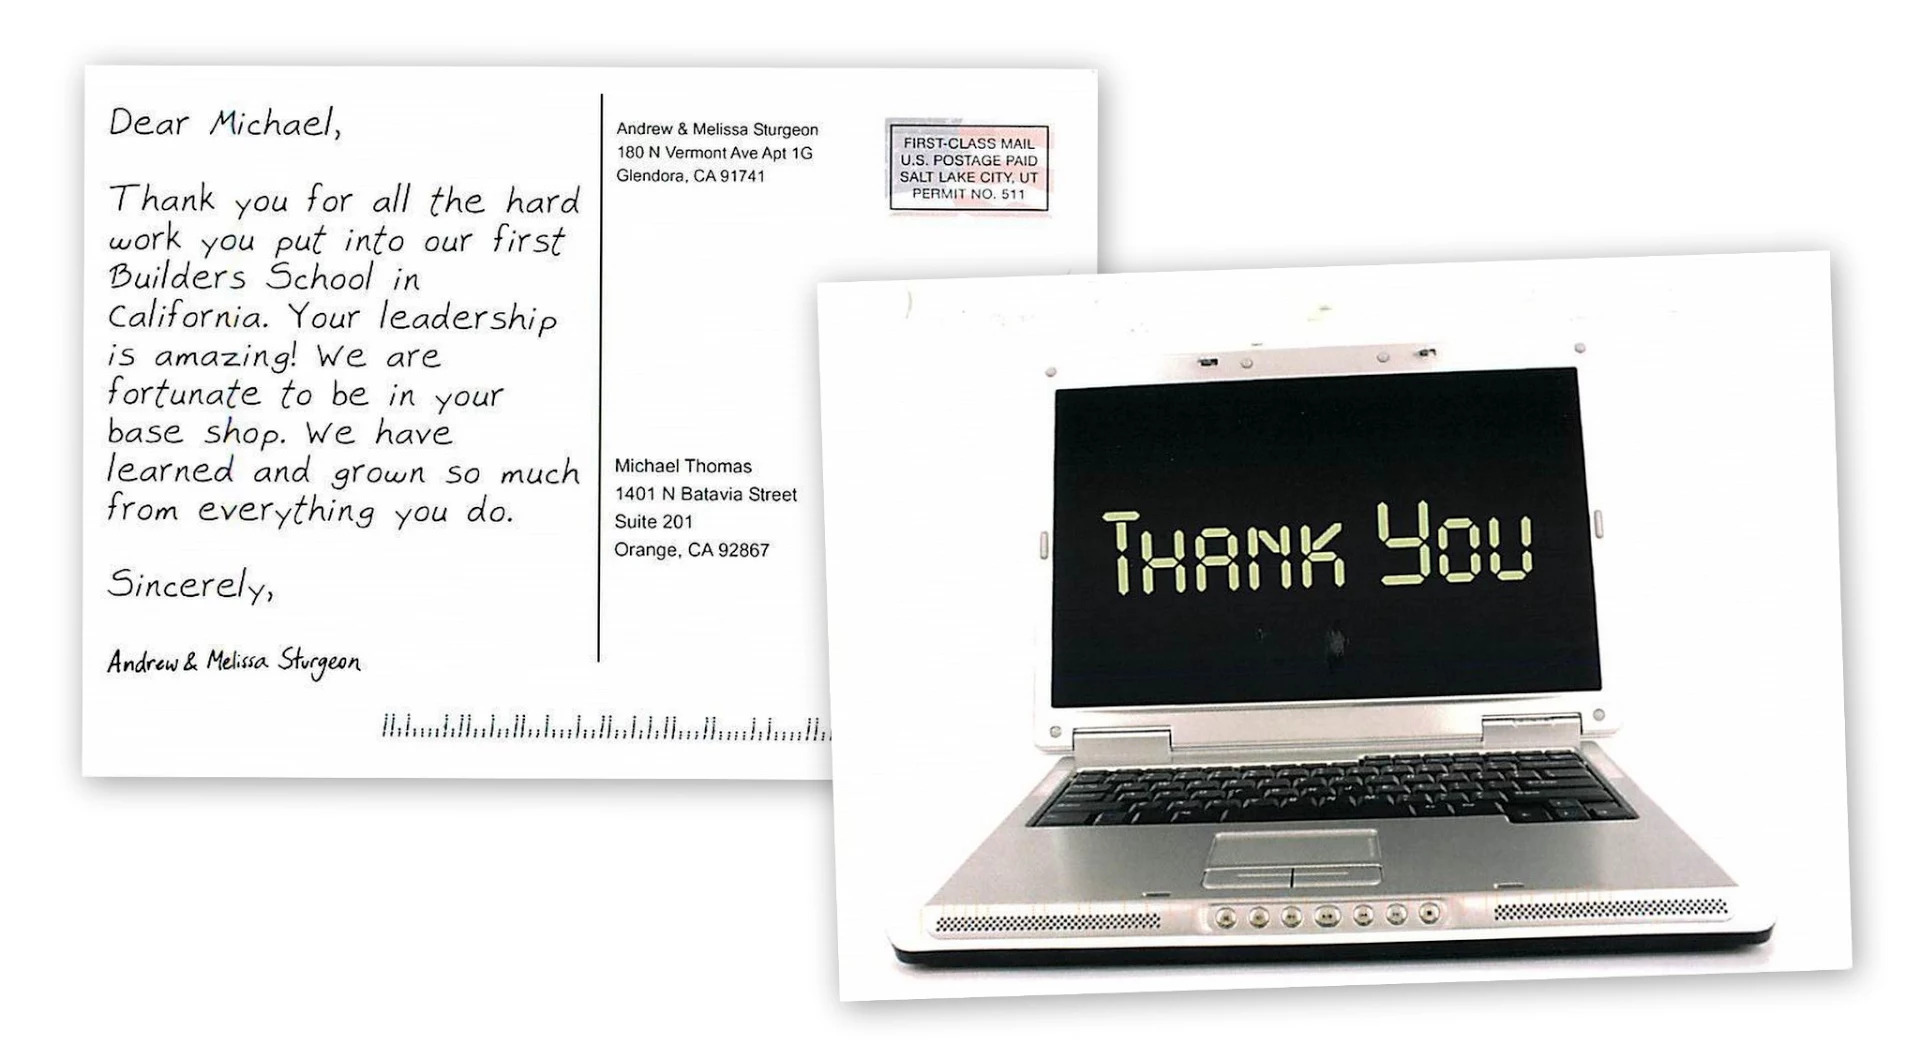 Dear Michael,
Thank you for all the hard
work you put into our first
Builders School in
California. Your leadership
is amazing! We are
fortunate to be in your
base shop. We have
learned and grown so much
from everything you do.
Sincerely,
Andrew & Melissa Sturgeon
Andrew & Melissa Sturgeon
180 N Vermont Ave Apt 1G
Glendora, CA 91741
FIRST-CLASS MAIL
U.S. POSTAGE PAID
SALT LAKE CITY, UT
PERMIT NO. 511
Michael Thomas
1401 N Batavia Street
Suite 201
Orange, CA 92867
THANK YOU